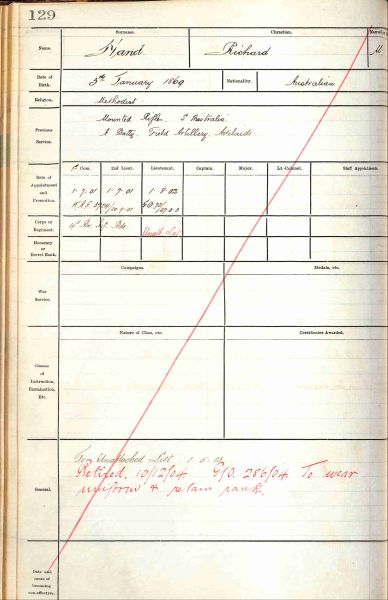 129
Surname.
Christian.
Name.
Richard
M
Date of Birth.
5th January 1869
Nationality.
Australian
Religion.
Methodist
Previous Service.
Mounted Rifles S Australia
A Batty. Field Artillery. Adelaide
1st Com.
2nd Lieut.
Lieutenant.
Captain.
Major.
Lt.-Colonel.
Staff Appointments
Date of Appointment and Promotion.
1-7-01
1-7-01
1-8-03
Corps or Regiment.
Unatt. List
Honorary or Brevet Rank.
Campaigns.
Medals, etc.
War Service.
Nature of Class, etc.
Certificates Awarded.
Classes of Instruction, Examination, Etc.
General.
To Unattached List 1.5.03
Retired. 10/12/04 G/O. 286/04. To wear
uniform & retain rank.
Date and cause of becoming non-effective.